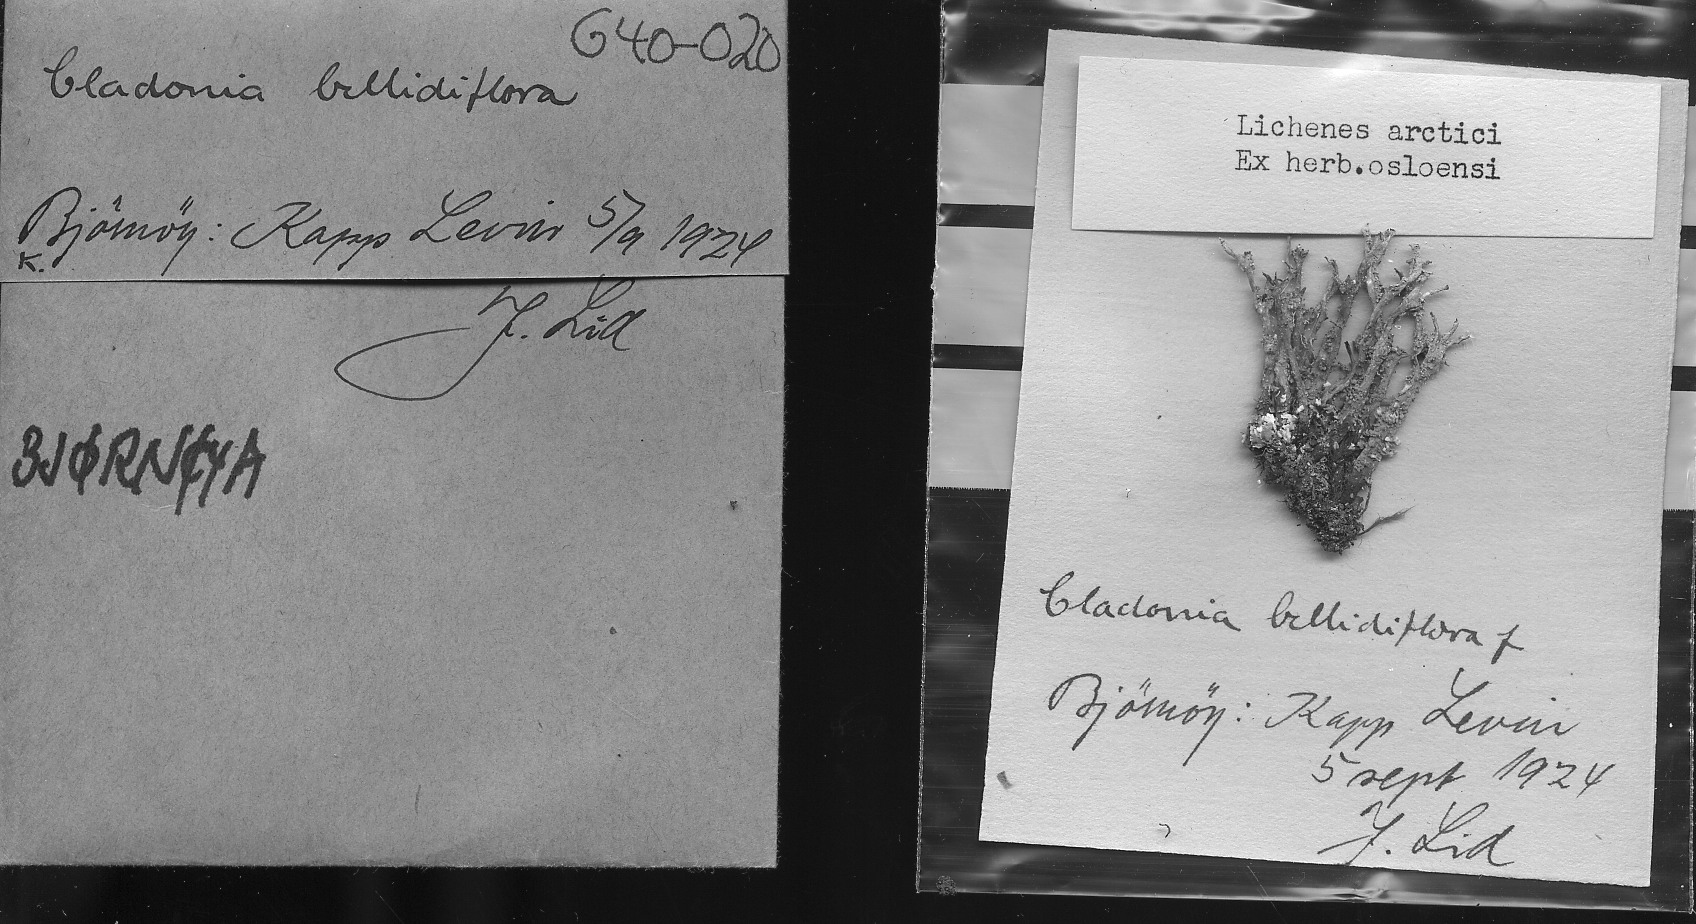 G40-020
Cladonia bellidiflora
Björnöy: Kapp Levin 5/9 1924
K.
J. Lid
BJØRNØYA
Lichenes arctici
Ex herb.osloensi
Cladonia bellidiflora f
Björnöy: Kapp Levin
5 sept 1924
J. Lid